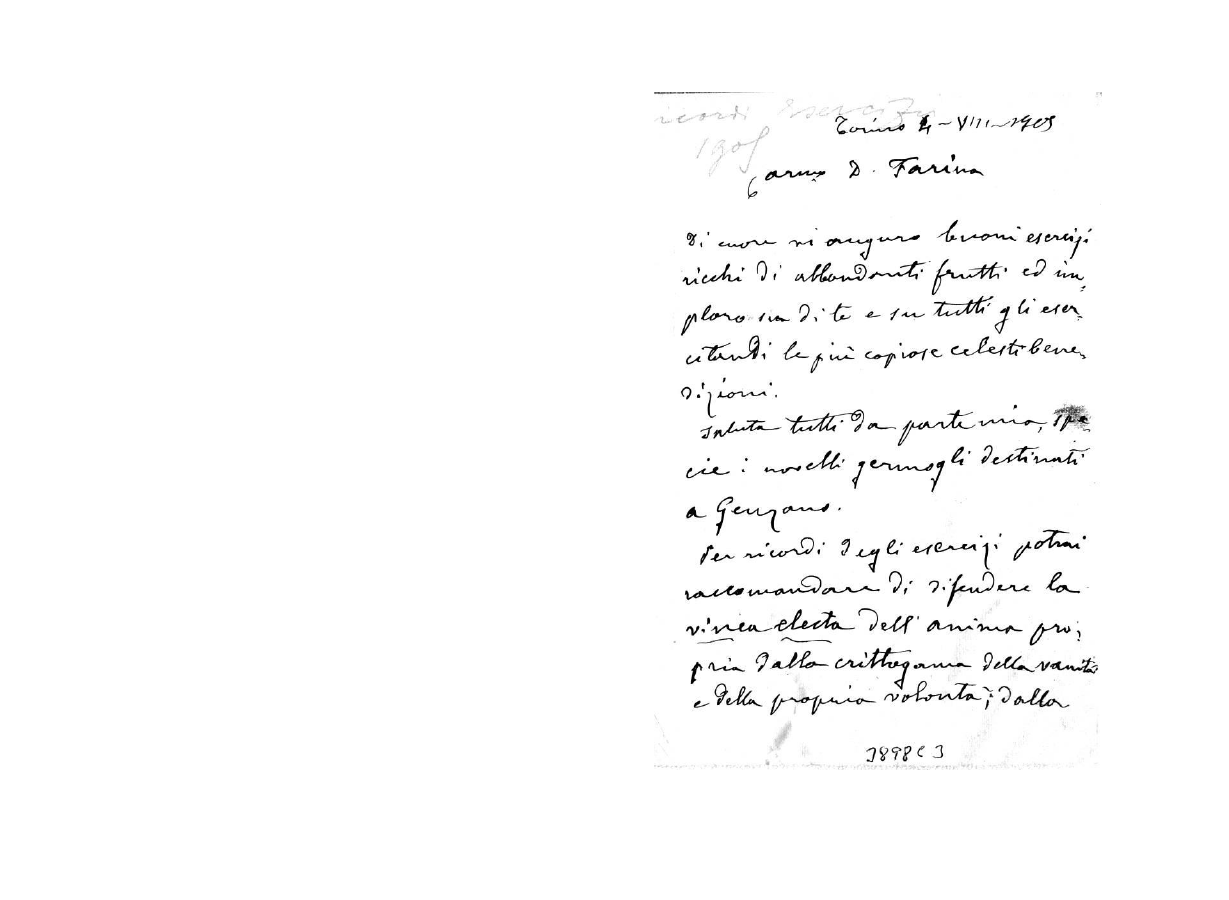 ricordi Esercizi
1905
Torino 4-VIII-1905
Carmo D. Farina
Di cuore vi auguro buoni esercizi
ricchi di abbondanti frutti ed im-
ploro su di te e su tutti gli eser-
citandi le più copiose celesti bene-
dizioni.
Saluta tutti da parte mia, spe
cie i novelli germogli destinati
a Genzano.
Per ricordi degli esercizi potrai
raccomandare di difendere la
vinea electa dell'anima pro-
pria dalla crittogama della vanità
e della propria volontà; dalla
3898 C 3